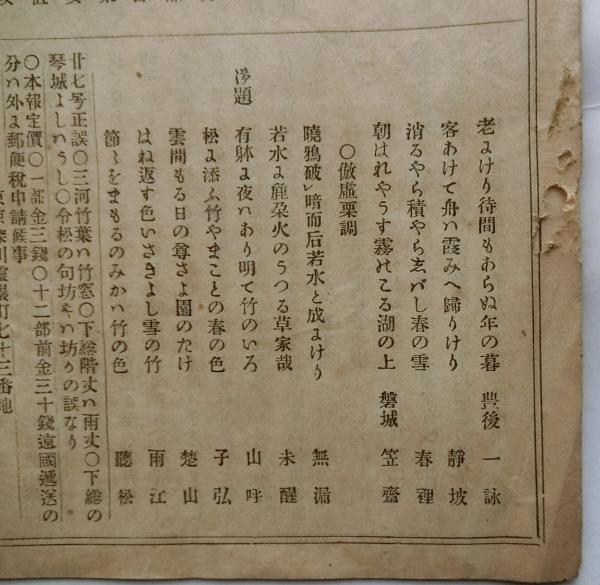 老よけり待間もあらぬ年の暮 豊後 一詠
客あけて舟ハ霞みへ歸りけり 靜坡
消るやら積やら志バし春の雪 春裡
朝はれやうす霧のこる湖の上 磐城 笠齋
○倣虛栗調
曉鴉破レ暗而后若水と成よけり 無漏
若水よ麁朶火のうつる草家哉 未醒
題
有躰よ夜ハわり明て竹のいろ 山呼
松よ添ふ竹やまことの春の色 子弘
雲間もる日の尊さよ園のたけ 楚山
はね返す色いさきよし雪の竹 雨江
節〻をまもるのみかハ竹の色 聽松
廿七号正誤○三河竹葉ハ竹窓○下総階丈ハ雨丈○下総の
琴城よしハうし○令松の句坊そハ坊りの誤なり
○本報定價○一部金三錢○十二部前金三十錢遠國遞送の
分ハ外よ郵便税申請候事
京深川靈巖町七十三番地